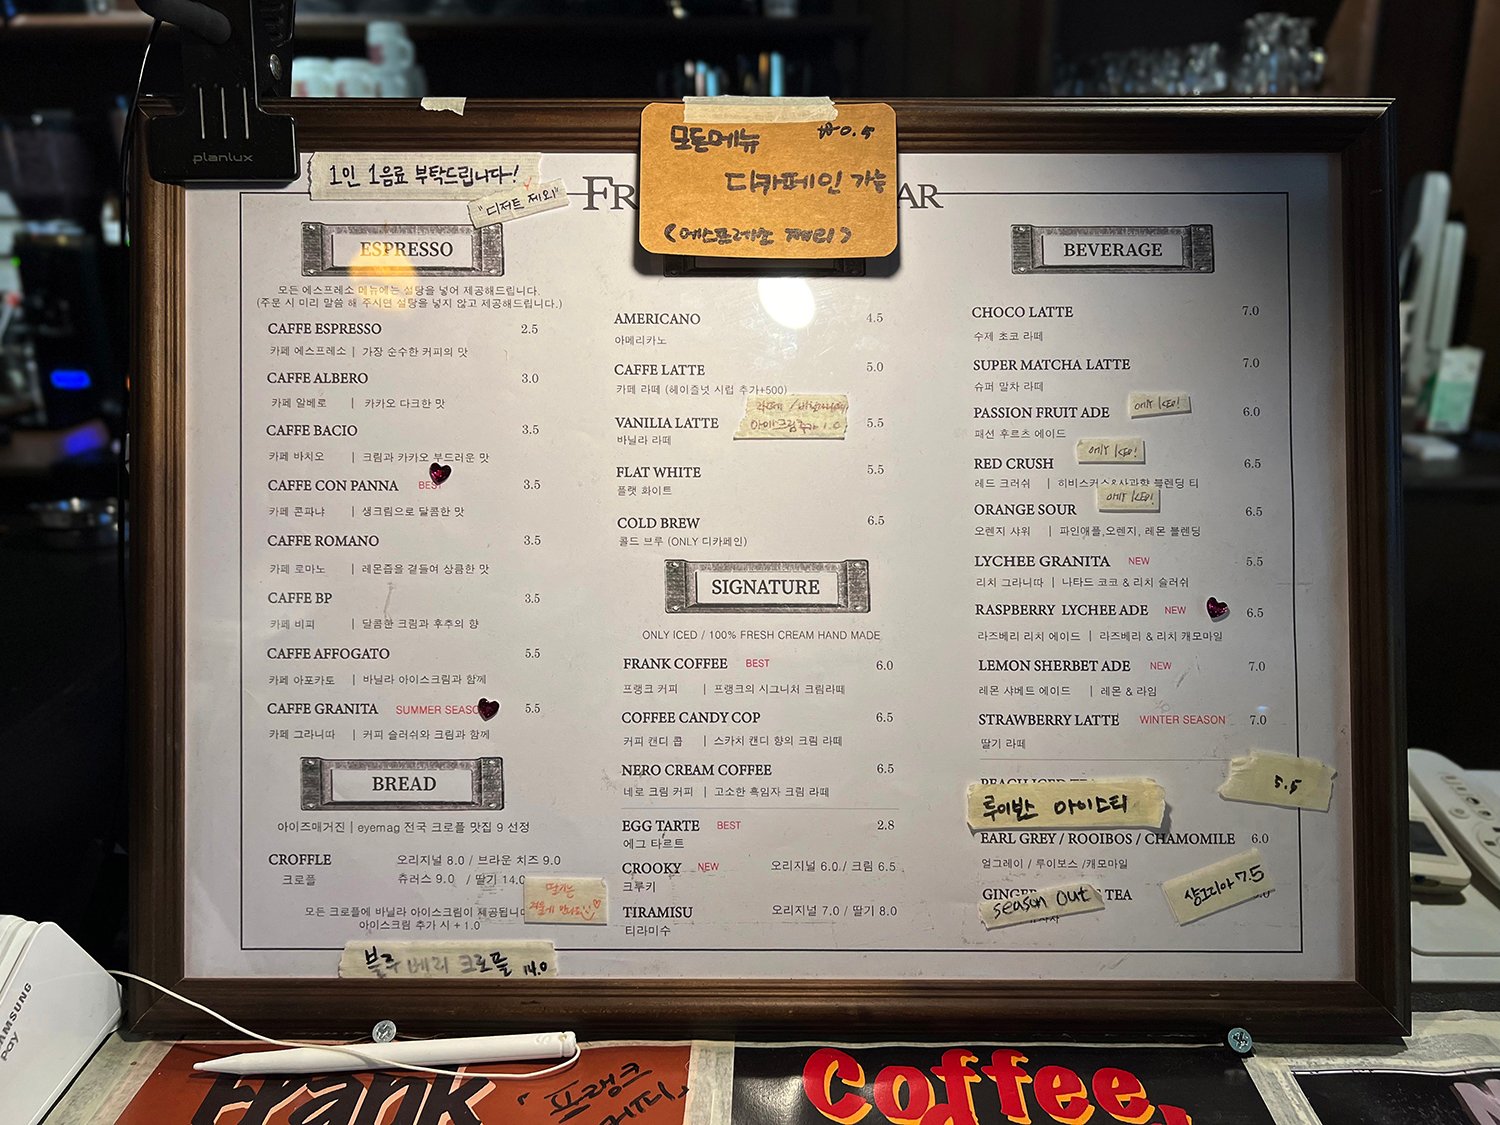 planlux
1인 1음료 부탁드립니다!
"디저트 제외"
모든메뉴 ₩0.5
디카페인 가능
(에스프레소 제외)
ESPRESSO
모든 에스프레소 메뉴에는 설탕을 넣어 제공해드립니다.
(주문 시 미리 말씀 해 주시면 설탕을 넣지 않고 제공해드립니다.)
CAFFE ESPRESSO 2.5
카페 에스프레소 | 가장 순수한 커피의 맛
CAFFE ALBERO 3.0
카페 알베로 | 카카오 다크한 맛
CAFFE BACIO 3.5
카페 바치오 | 크림과 카카오 부드러운 맛
CAFFE CON PANNA BEST 3.5
카페 콘파냐 | 생크림으로 달콤한 맛
CAFFE ROMANO 3.5
카페 로마노 | 레몬즙을 곁들여 상큼한 맛
CAFFE BP 3.5
카페 비피 | 달콤한 크림과 후추의 향
CAFFE AFFOGATO 5.5
카페 아포카토 | 바닐라 아이스크림과 함께
CAFFE GRANITA SUMMER SEASO 5.5
카페 그라니따 | 커피 슬러쉬와 크림과 함께
BREAD
아이즈매거진 | eyemag 전국 크로플 맛집 9 선정
CROFFLE 오리지널 8.0 / 브라운 치즈 9.0
크로플 츄러스 9.0 / 딸기 14.0
딸기는
겨울에 만나요
모든 크로플에 바닐라 아이스크림이 제공됩니다
아이스크림 추가 시 + 1.0
블루베리 크로플 14.0
AMERICANO 4.5
아메리카노
CAFFE LATTE 5.0
카페 라떼 (헤이즐넛 시럽 추가+500)
VANILIA LATTE 5.5
바닐라 라떼
아이스크림추가 1.0
FLAT WHITE 5.5
플랫 화이트
COLD BREW 6.5
콜드 브루 (ONLY 디카페인)
SIGNATURE
ONLY ICED / 100% FRESH CREAM HAND MADE
FRANK COFFEE BEST 6.0
프랭크 커피 | 프랭크의 시그니처 크림라떼
COFFEE CANDY COP 6.5
커피 캔디 콥 | 스카치 캔디 향의 크림 라떼
NERO CREAM COFFEE 6.5
네로 크림 커피 | 고소한 흑임자 크림 라떼
EGG TARTE BEST 2.8
에그 타르트
CROOKY NEW 오리지널 6.0 / 크림 6.5
크루키
TIRAMISU 오리지널 7.0 / 딸기 8.0
티라미수
BEVERAGE
CHOCO LATTE 7.0
수제 초코 라떼
SUPER MATCHA LATTE 7.0
슈퍼 말차 라떼
PASSION FRUIT ADE only ICED! 6.0
패션 후르츠 에이드
RED CRUSH only ICED! 6.5
레드 크러쉬 | 히비스커스&사과향 블렌딩 티
ORANGE SOUR only ICED! 6.5
오렌지 샤워 | 파인애플,오렌지, 레몬 블렌딩
LYCHEE GRANITA NEW 5.5
리치 그라니따 | 나타드 코코 & 리치 슬러쉬
RASPBERRY LYCHEE ADE NEW 6.5
라즈베리 리치 에이드 | 라즈베리 & 리치 캐모마일
LEMON SHERBET ADE NEW 7.0
레몬 샤베트 에이드 | 레몬 & 라임
STRAWBERRY LATTE WINTER SEASON 7.0
딸기 라떼
루이보스 아이스티 5.5
EARL GREY / ROOIBOS / CHAMOMILE 6.0
얼그레이 / 루이보스 /캐모마일
GINGER TEA
season out
상그리아 7.5
SAMSUNG
pay
Frank
프랭크
커피
Coffee,